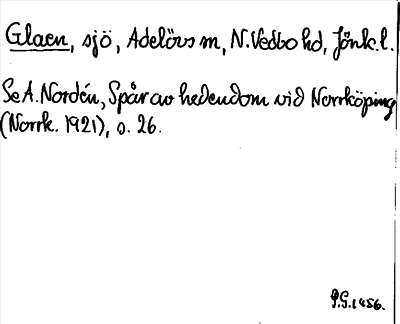 Glaen, sjö, Adelövs m, N. Vedbo hd, Jönk. l.
Se A. Nordén, Spår av hedendom vid Norrköping
(Norrk. 1921), s. 26.
P.G. 1956.